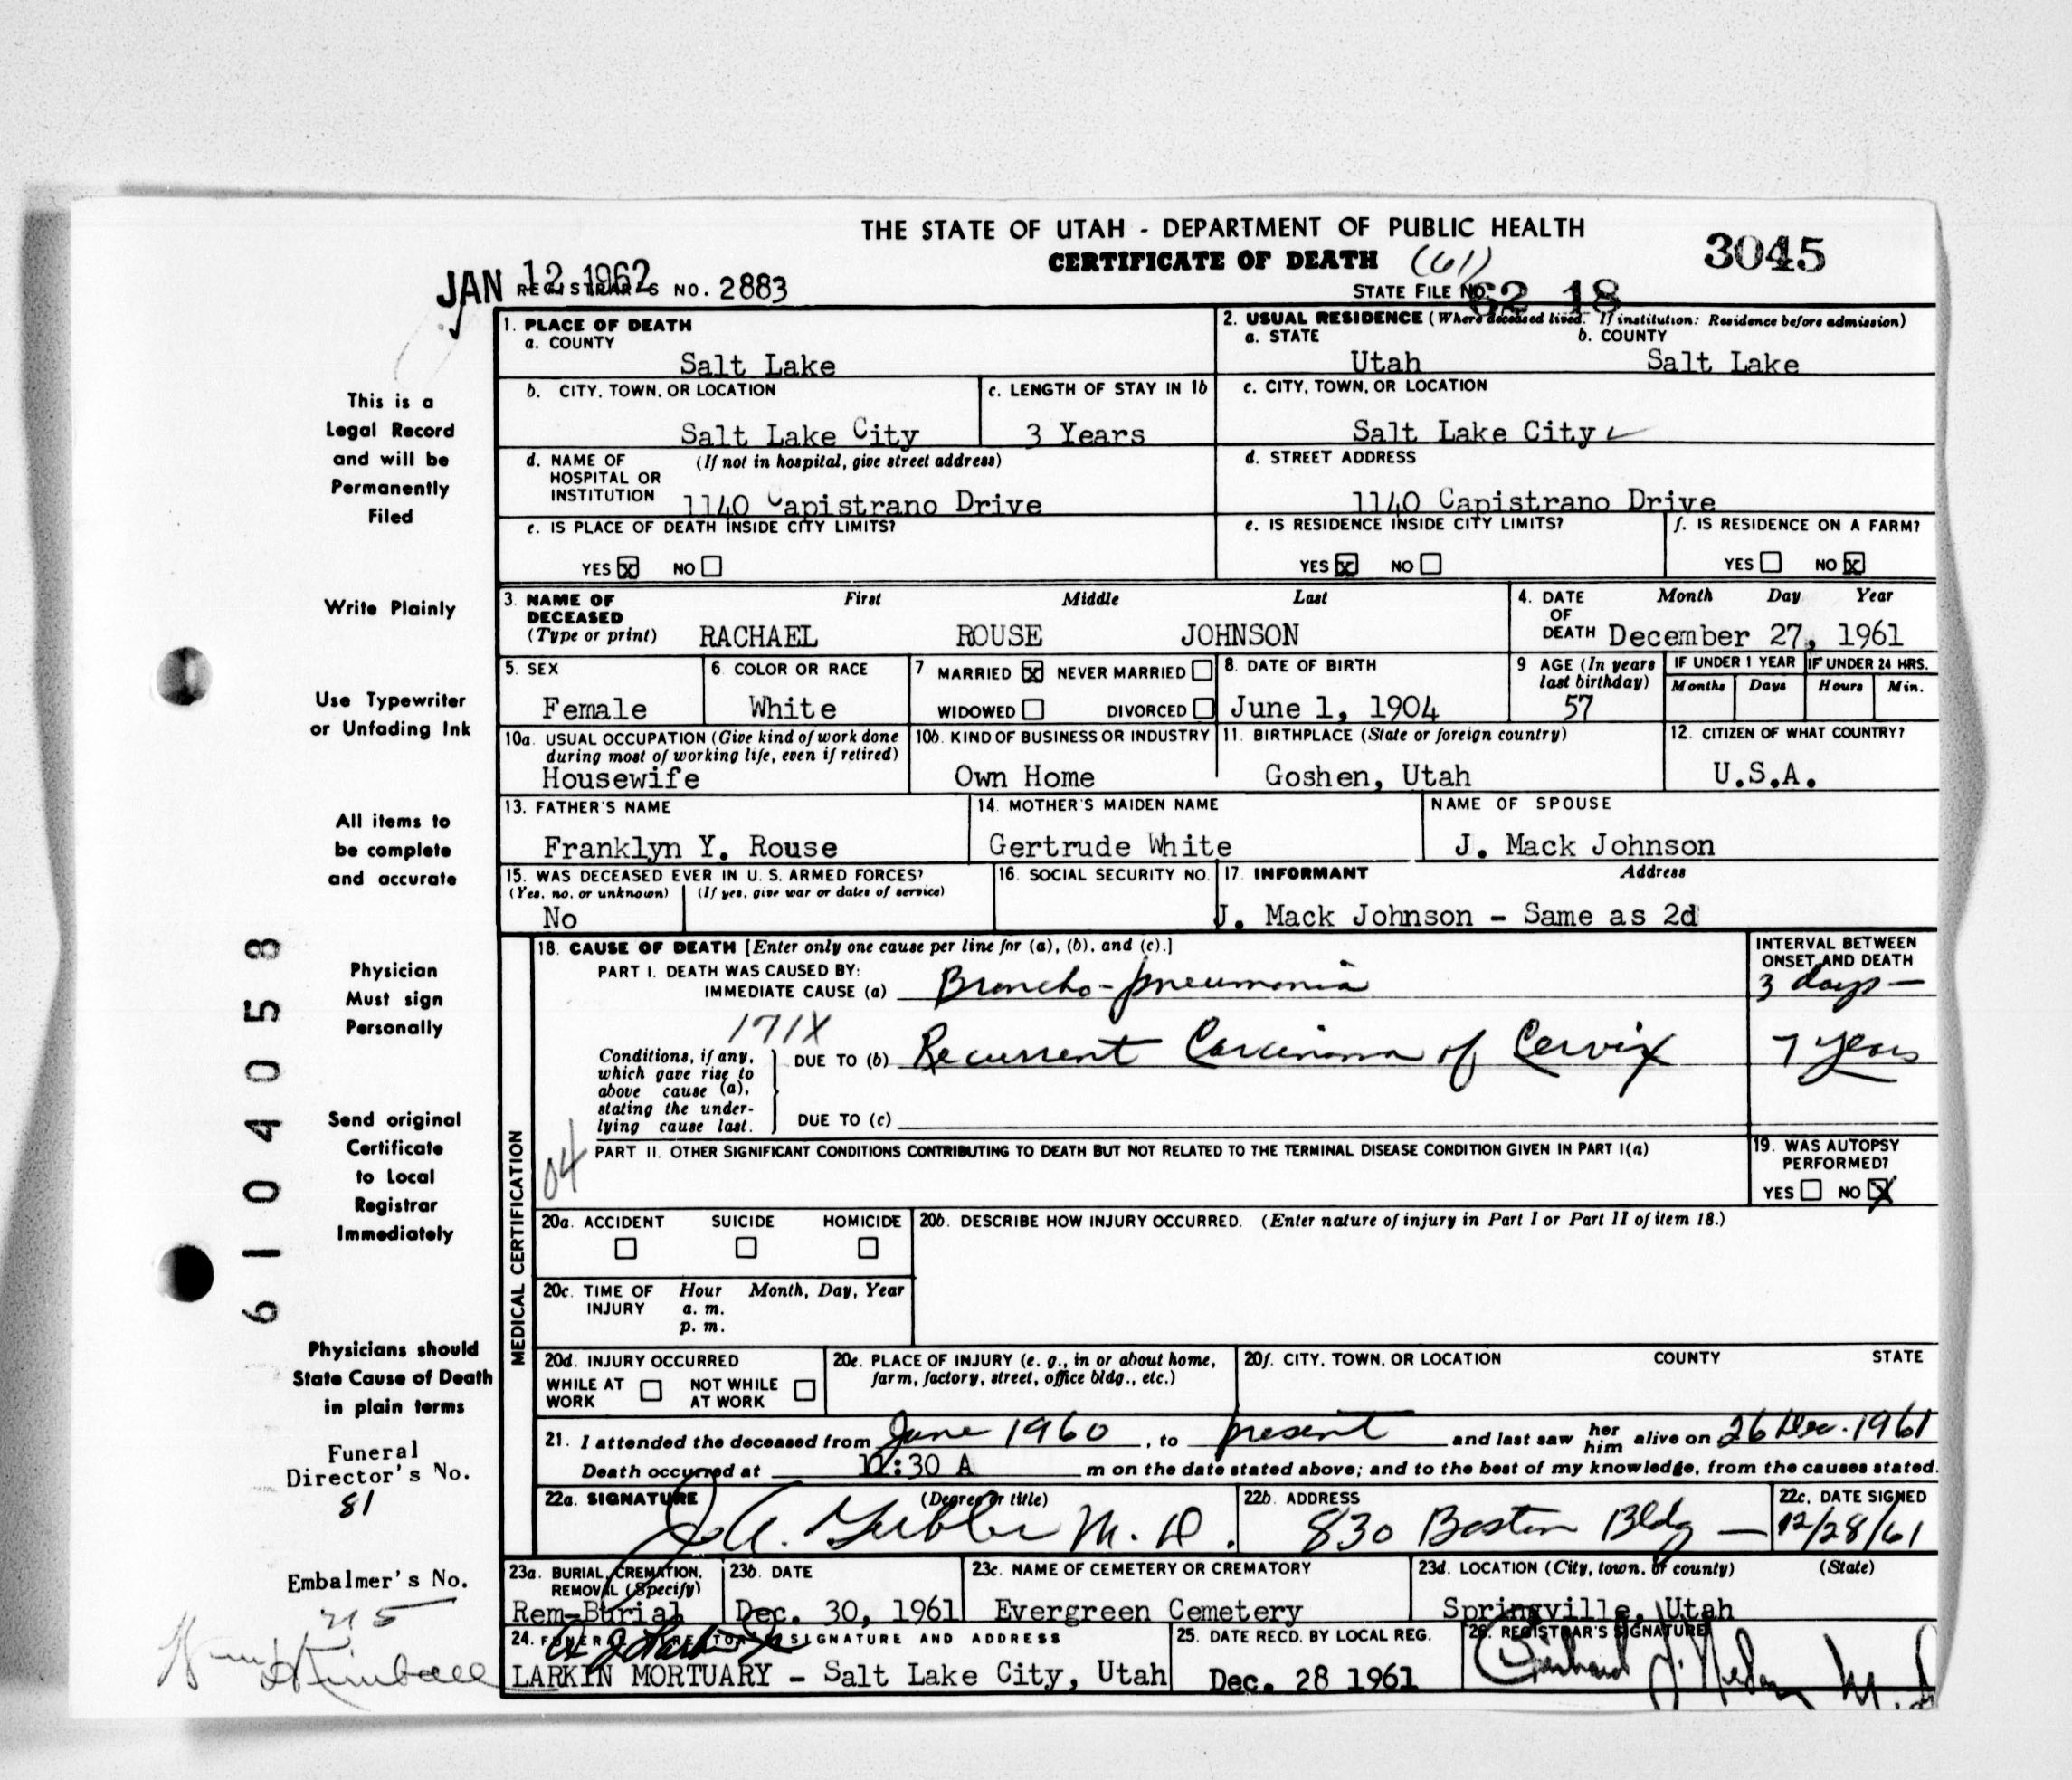 THE STATE OF UTAH - DEPARTMENT OF PUBLIC HEALTH
CERTIFICATE OF DEATH (61) 3045
JAN 12 1962 REGISTRAR'S NO. 2883 STATE FILE NO. 62 18
1. PLACE OF DEATH
a. COUNTY
Salt Lake
2. USUAL RESIDENCE (Where deceased lived. If institution: Residence before admission)
a. STATE b. COUNTY
Utah Salt Lake
b. CITY, TOWN, OR LOCATION
Salt Lake City
c. LENGTH OF STAY IN 1b
3 Years
c. CITY, TOWN, OR LOCATION
Salt Lake City
d. NAME OF (If not in hospital, give street address)
HOSPITAL OR
INSTITUTION 1140 Capistrano Drive
d. STREET ADDRESS
1140 Capistrano Drive
e. IS PLACE OF DEATH INSIDE CITY LIMITS?
YES x NO
e. IS RESIDENCE INSIDE CITY LIMITS?
YES x NO
f. IS RESIDENCE ON A FARM?
YES NO x
3. NAME OF First Middle Last
DECEASED
(Type or print) RACHAEL ROUSE JOHNSON
4. DATE Month Day Year
OF
DEATH December 27, 1961
5. SEX
Female
6. COLOR OR RACE
White
7 MARRIED x NEVER MARRIED
WIDOWED DIVORCED
8. DATE OF BIRTH
June 1, 1904
9 AGE (In years
last birthday)
57
IF UNDER 1 YEAR IF UNDER 24 HRS.
Months Days Hours Min.
10a. USUAL OCCUPATION (Give kind of work done
during most of working life, even if retired)
Housewife
10b. KIND OF BUSINESS OR INDUSTRY
Own Home
11. BIRTHPLACE (State or foreign country)
Goshen, Utah
12. CITIZEN OF WHAT COUNTRY?
U.S.A.
13. FATHER'S NAME
Franklyn Y. Rouse
14. MOTHER'S MAIDEN NAME
Gertrude White
NAME OF SPOUSE
J. Mack Johnson
15. WAS DECEASED EVER IN U. S. ARMED FORCES?
(Yes, no, or unknown) (If yes, give war or dates of service)
No
16. SOCIAL SECURITY NO.
17. INFORMANT Address
J. Mack Johnson - Same as 2d
MEDICAL CERTIFICATION
18. CAUSE OF DEATH [Enter only one cause per line for (a), (b), and (c).]
PART I. DEATH WAS CAUSED BY:
IMMEDIATE CAUSE (a) Broncho-pneumonia
INTERVAL BETWEEN
ONSET AND DEATH
3 days
171X
Conditions, if any,
which gave rise to
above cause (a),
stating the under-
lying cause last.
DUE TO (b) Recurrent Carcinoma of Cervix 7 years
DUE TO (c)
04
PART II. OTHER SIGNIFICANT CONDITIONS CONTRIBUTING TO DEATH BUT NOT RELATED TO THE TERMINAL DISEASE CONDITION GIVEN IN PART I(a)
19. WAS AUTOPSY
PERFORMED?
YES NO X
20a. ACCIDENT SUICIDE HOMICIDE
20b. DESCRIBE HOW INJURY OCCURRED. (Enter nature of injury in Part I or Part II of item 18.)
20c. TIME OF Hour Month, Day, Year
INJURY a. m.
p. m.
20d. INJURY OCCURRED
WHILE AT NOT WHILE
WORK AT WORK
20e. PLACE OF INJURY (e. g., in or about home,
farm, factory, street, office bldg., etc.)
20f. CITY, TOWN, OR LOCATION COUNTY STATE
21. I attended the deceased from June 1960, to present and last saw her him alive on 26 Dec. 1961
Death occurred at :30 A m on the date stated above; and to the best of my knowledge, from the causes stated.
22a. SIGNATURE (Degree or title)
J. A. M. D.
22b. ADDRESS
830 Boston Bldg
22c. DATE SIGNED
12/28/61
23a. BURIAL, CREMATION,
REMOVAL (Specify)
Rem-Burial
23b. DATE
Dec. 30, 1961
23c. NAME OF CEMETERY OR CREMATORY
Evergreen Cemetery
23d. LOCATION (City, town, or county) (State)
Springville, Utah
24. FUNERAL DIRECTOR'S SIGNATURE AND ADDRESS
LARKIN MORTUARY - Salt Lake City, Utah
25. DATE RECD. BY LOCAL REG.
Dec. 28 1961
26. REGISTRAR'S SIGNATURE
This is a
Legal Record
and will be
Permanently
Filed
Write Plainly
Use Typewriter
or Unfading Ink
All items to
be complete
and accurate
Physician
Must sign
Personally
Send original
Certificate
to Local
Registrar
Immediately
Physicians should
State Cause of Death
in plain terms
Funeral
Director's No.
81
Embalmer's No.
215
Kimball
6104058